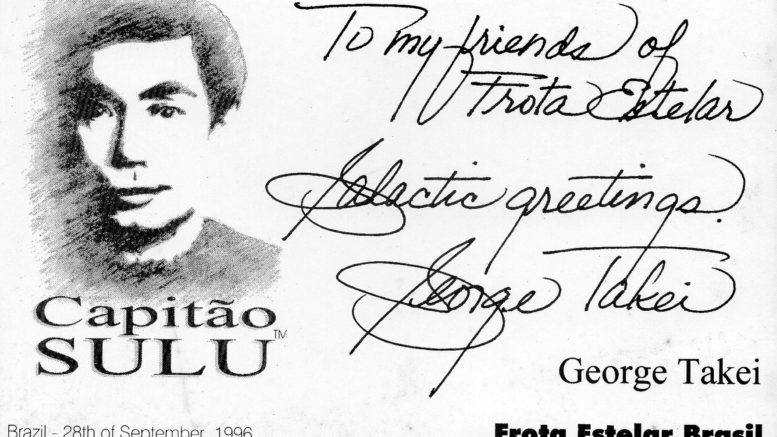 To my friends of
Frota Estelar
Galactic greetings.
George Takei
Capitão
SULU™
George Takei
Brazil - 28th of September, 1996
Frota Estelar Brasil